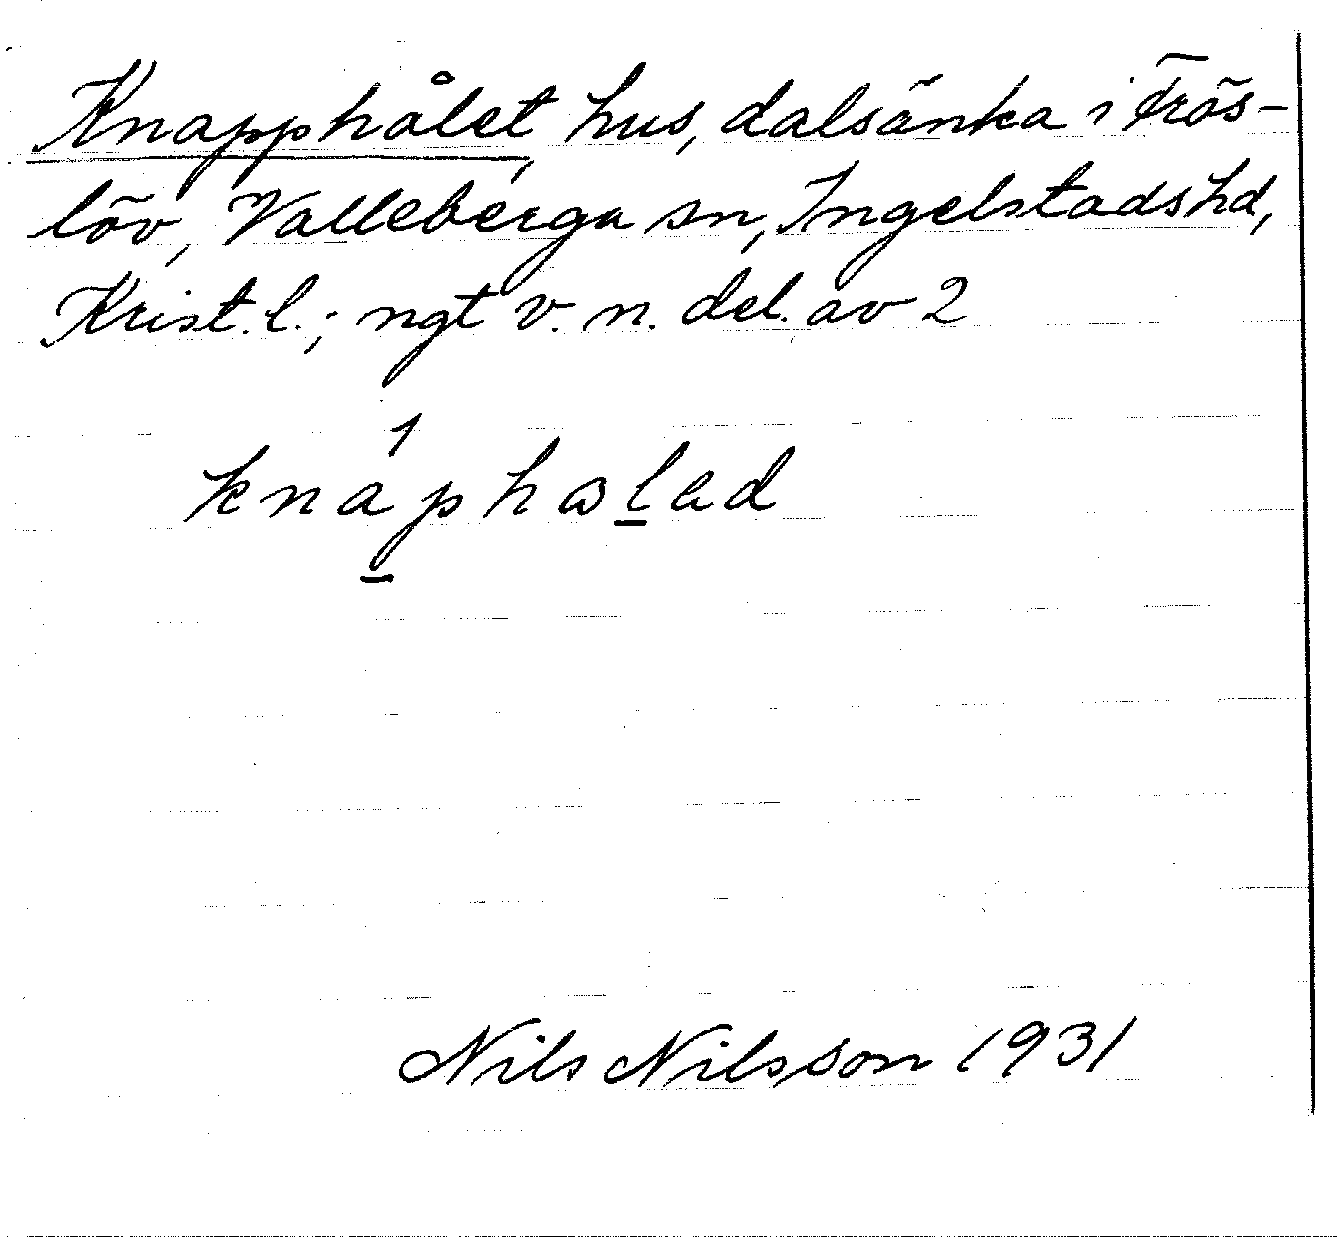 Knapphålet, hus, dalsänka i Frös-
löv, Valleberga sn, Ingelstads hd,
Krist. l.; ngt v. n. del. av 2
Nils Nilsson 1931